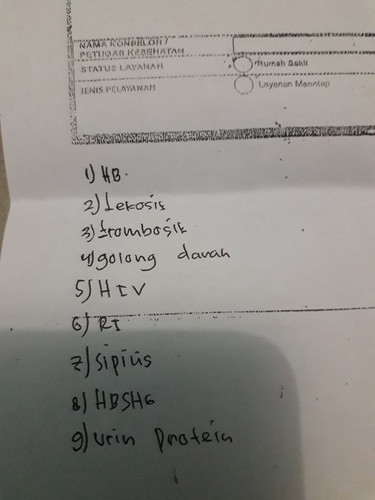 NAMA KONSELOR /
PETUGAS KESEHATAN
STATUS LAYANAN
Rumah Sakit
JENIS PELAYANAN
Layanan Menetap
1) HB.
2) Lekosis
3) trombosit
4) golong darah
5) HIV
6) RI
7) sipiüs
8) HBSHG
9) urin protein